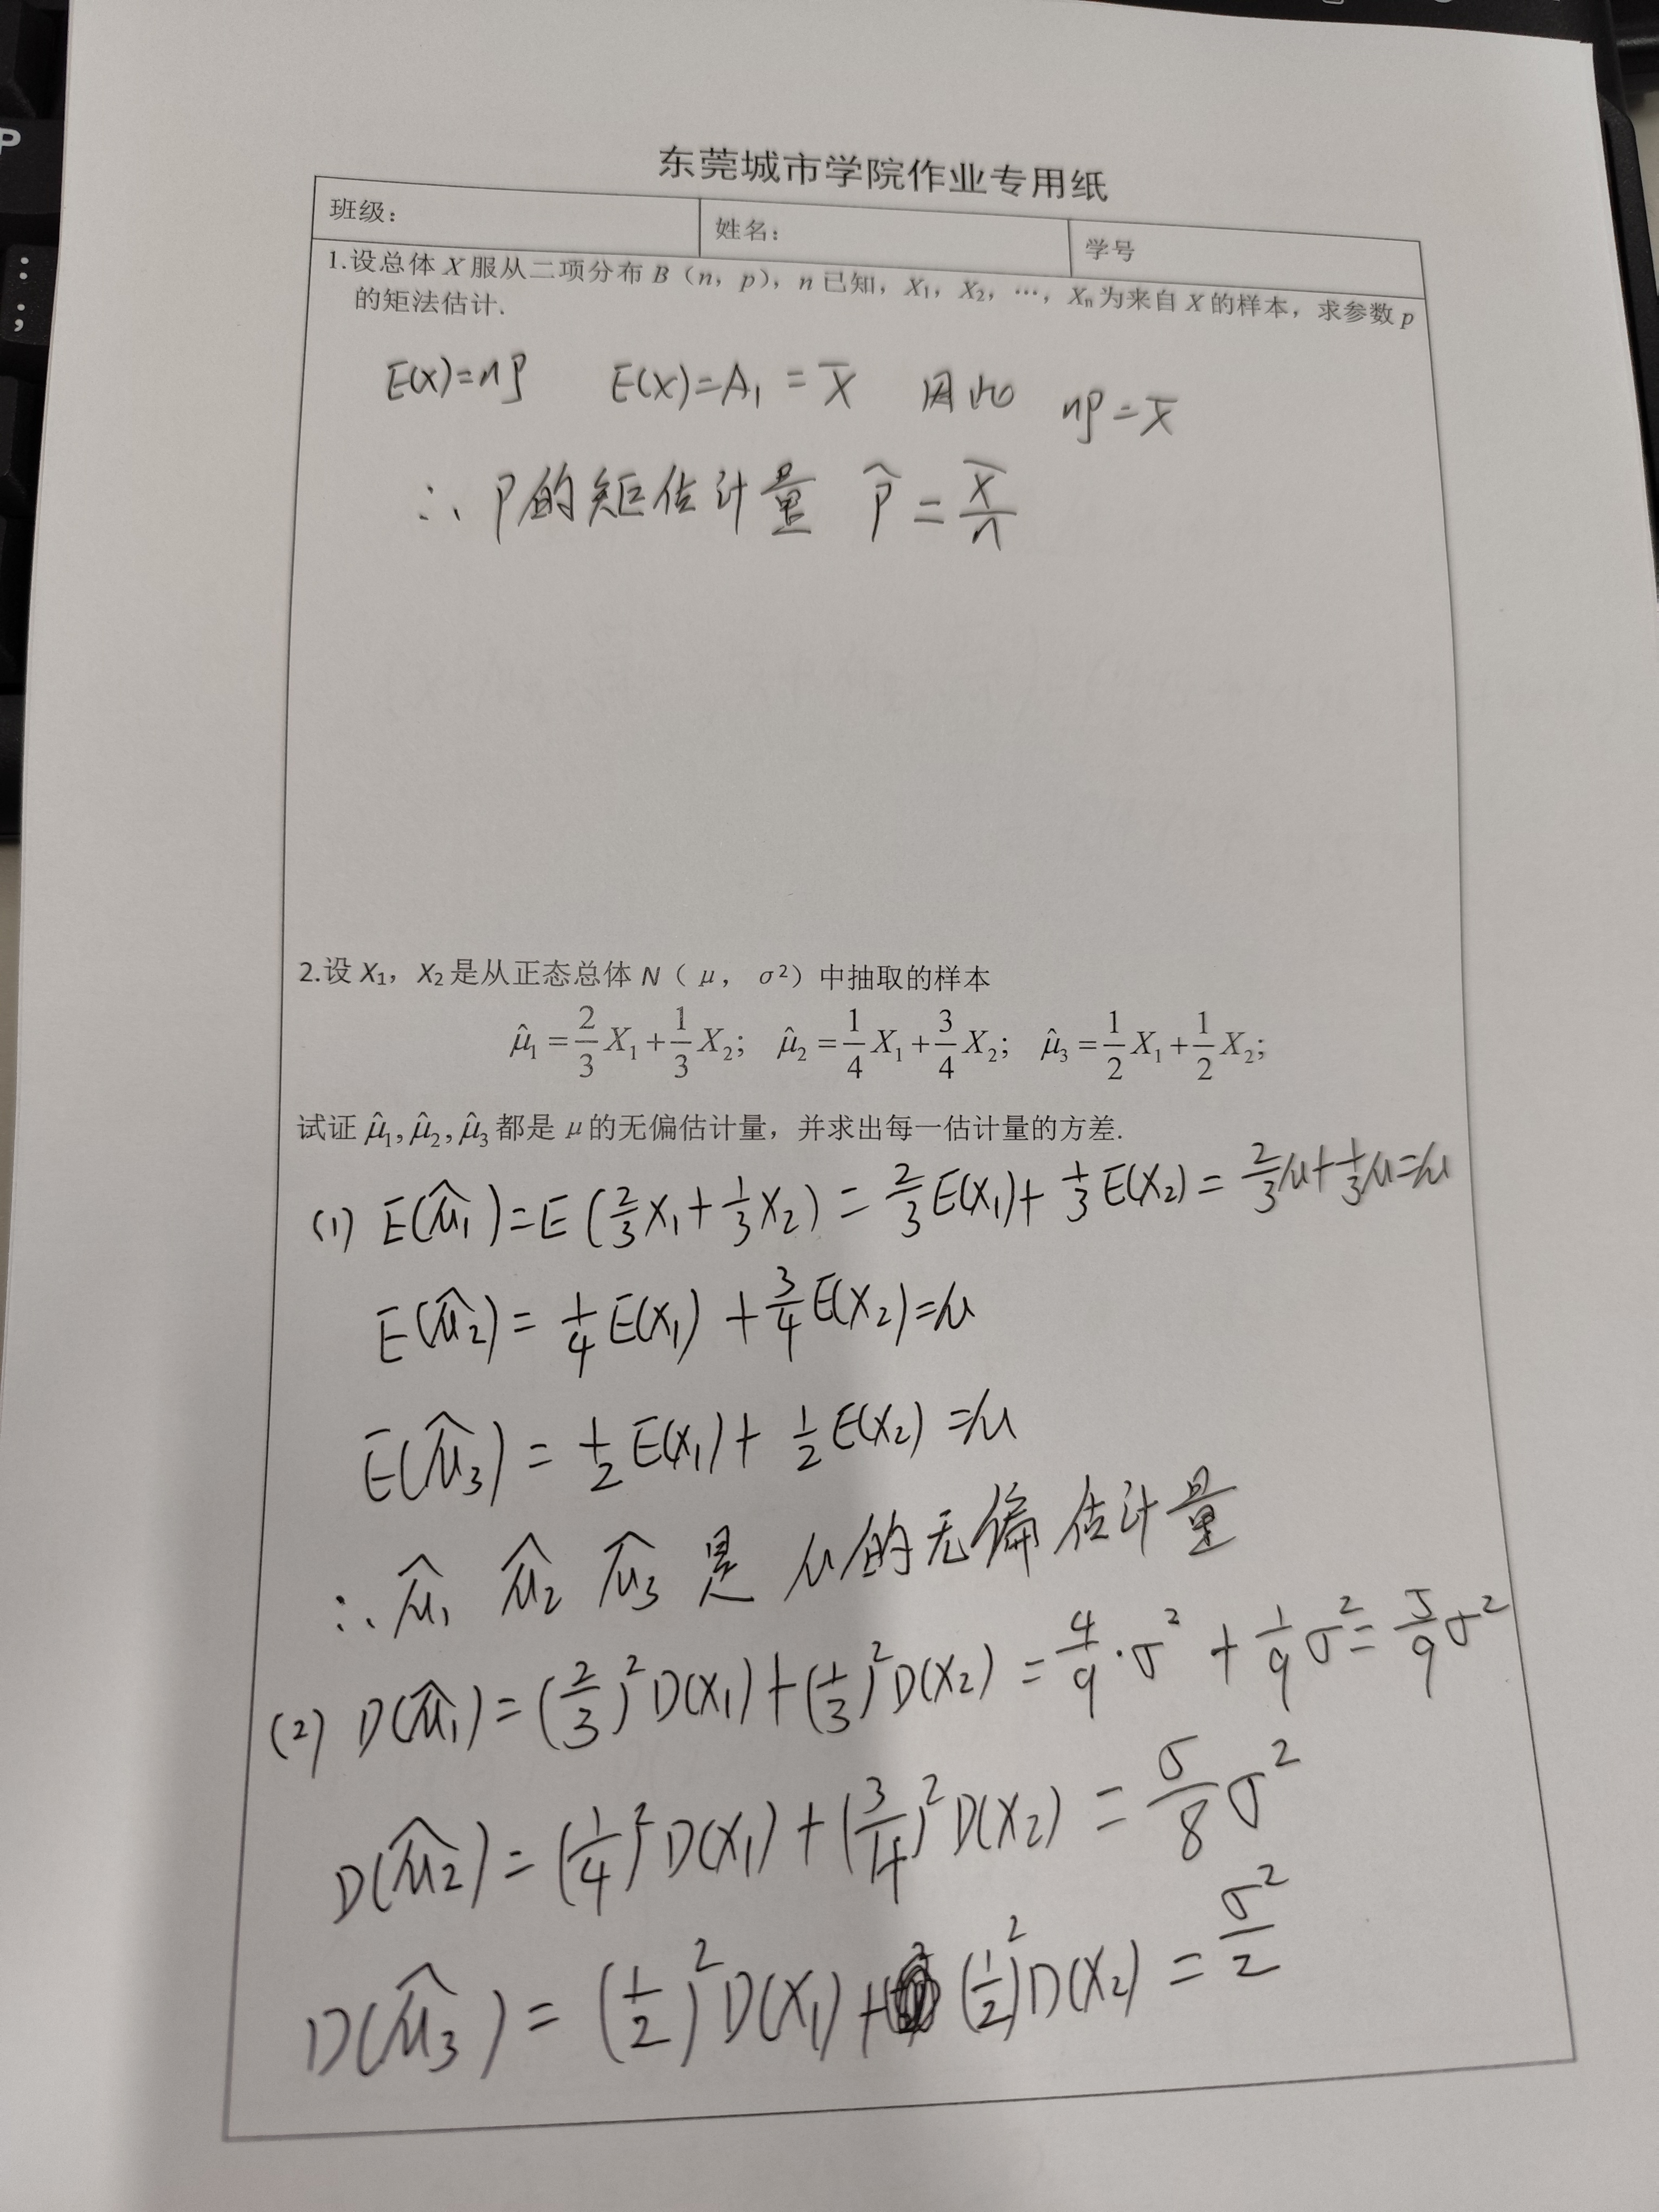 P
:
;
东莞城市学院作业专用纸
班级： 姓名： 学号
1.设总体 X 服从二项分布 B（n，p），n 已知，X₁，X₂，…，Xₙ 为来自 X 的样本，求参数 p
的矩法估计.
E(X)=np E(X)=A₁=X̄ 因此 np=X̄
∴ p的矩估计量 p̂ = X̄/n
2.设 X₁，X₂ 是从正态总体 N（μ，σ²）中抽取的样本
μ̂₁=2/3 X₁+1/3 X₂; μ̂₂=1/4 X₁+3/4 X₂; μ̂₃=1/2 X₁+1/2 X₂;
试证 μ̂₁,μ̂₂,μ̂₃ 都是 μ 的无偏估计量，并求出每一估计量的方差.
(1) E(μ̂₁)=E(2/3 X₁+1/3 X₂)=2/3 E(X₁)+1/3 E(X₂)=2/3 μ+1/3 μ=μ
E(μ̂₂)=1/4 E(X₁)+3/4 E(X₂)=μ
E(μ̂₃)=1/2 E(X₁)+1/2 E(X₂)=μ
∴ μ̂₁ μ̂₂ μ̂₃ 是 μ的无偏估计量
(2) D(μ̂₁)=(2/3)²D(X₁)+(1/3)²D(X₂)=4/9·σ²+1/9 σ²=5/9 σ²
D(μ̂₂)=(1/4)²D(X₁)+(3/4)²D(X₂)=5/8 σ²
D(μ̂₃)=(1/2)²D(X₁)+(1/2)²D(X₂)=σ²/2